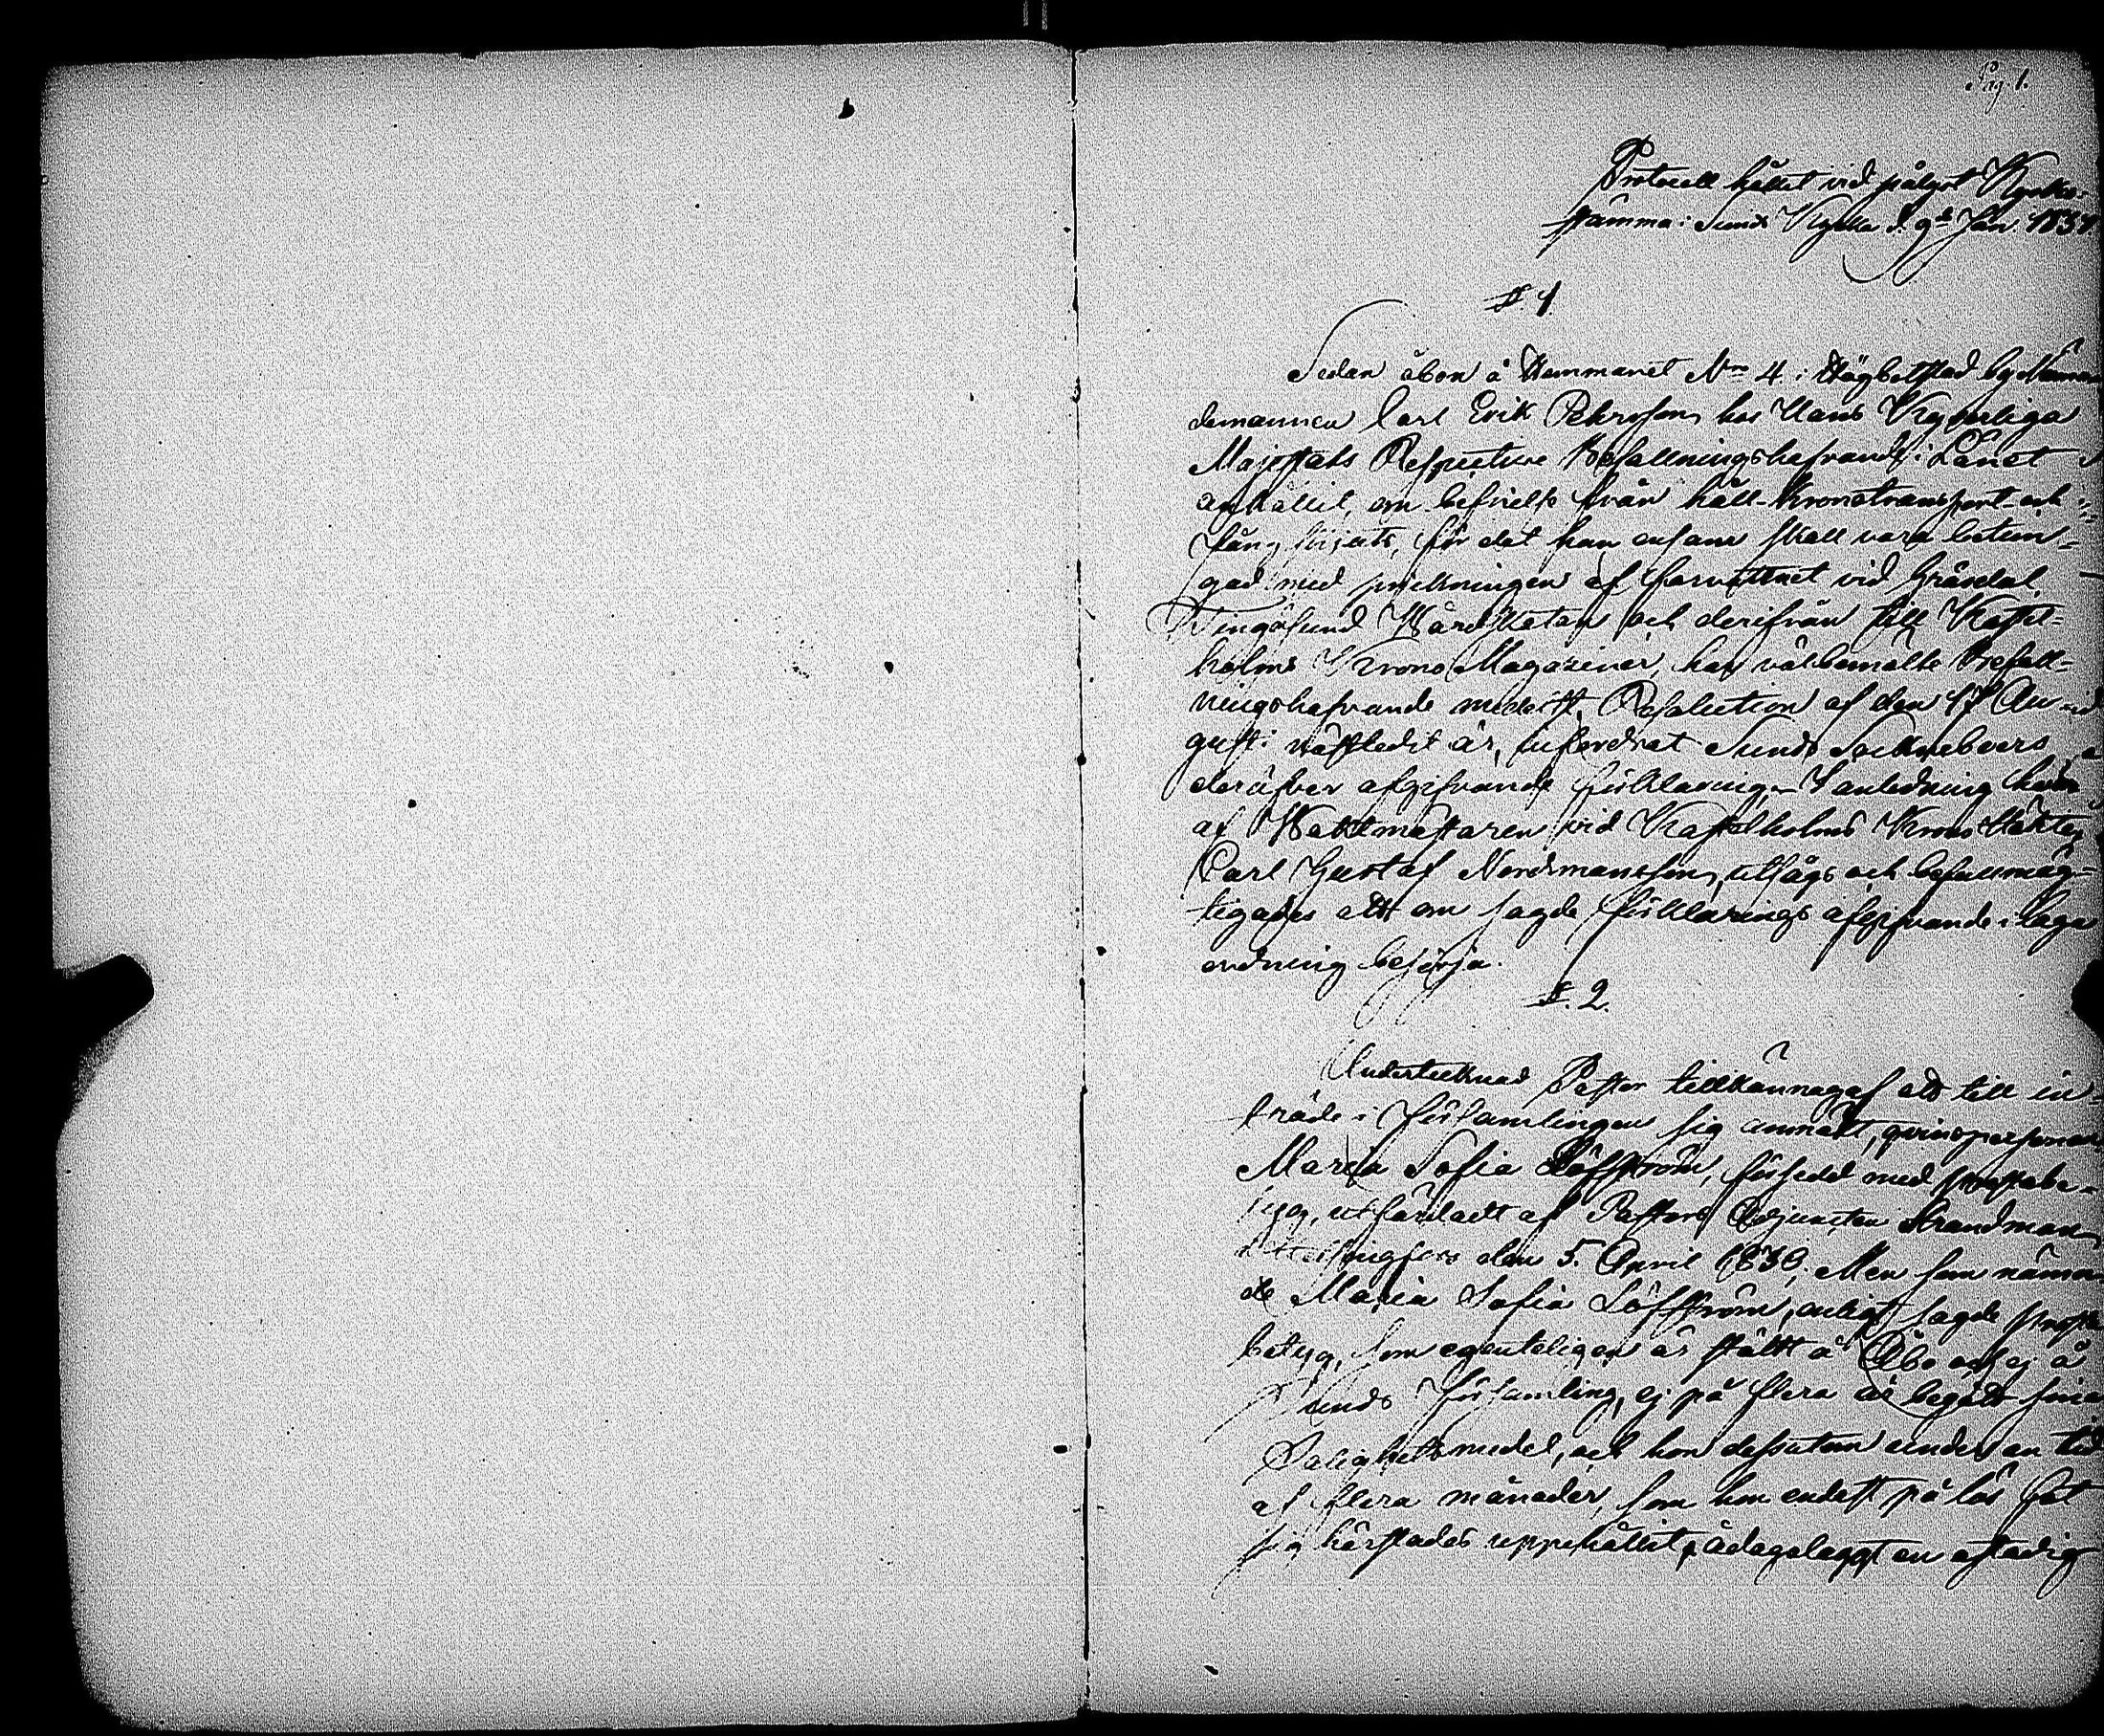 Pag. 1.
Protocoll hållet vid pålyst Kyrko-
stämma i Sunds Kyrka d. 9de Jan. 183
§. 1.
Sedan åbon å Hemmanet Nro 4 i Högbolstad by Nämn
demannen Carl Erik Pehrsson hos Hans Kejserliga
Majestäts Respective Befallningshafvande i Länet
anhållit, om befrielse från håll- Kronotransport- och
fång skjuts, för det han ensam skall vara betun-
gad med prickningen af farvattnet vid Gröndal
Tingösund Wårdkatan och derifrån till Kastel-
holms Krono Magaziner, har välbemälte Befall-
ningshafvande medelst Resolution af den 17 Au-
gusti nästledit år, infordrat Sunds Sockneboers
deröfver afgifvande förklaring. I anledning häraf
af Waktmästaren vid Kastelholms Krono Häkte
Carl Gustaf Nordmansson, utsågs och befullmäg-
tigades att om sagde förklarings afgifvande i laga
ordning besörja.
§. 2.
Undertecknad Pastor tillkännagaf att till in-
träde i församlingen sig anmält, qvinspersonen
Maria Sofia Löfström, försedd med prestabe-
tyg, utfärdadt af Pastors Adjuncten Strandman
i Helsingfors den 5. April 1838. Men som nämn
de Maria Sofia Löfström, enligt sagde presta
betyg, som egenteligen är stält å Åbo och ej å
Sunds församling, ej på flera år begått sina
Salighetsmedel, och hon dessutom under en tid
af flera månader, som hon endast på lös fot
sig härstädes uppehållit, ådagalaggt en ostadig